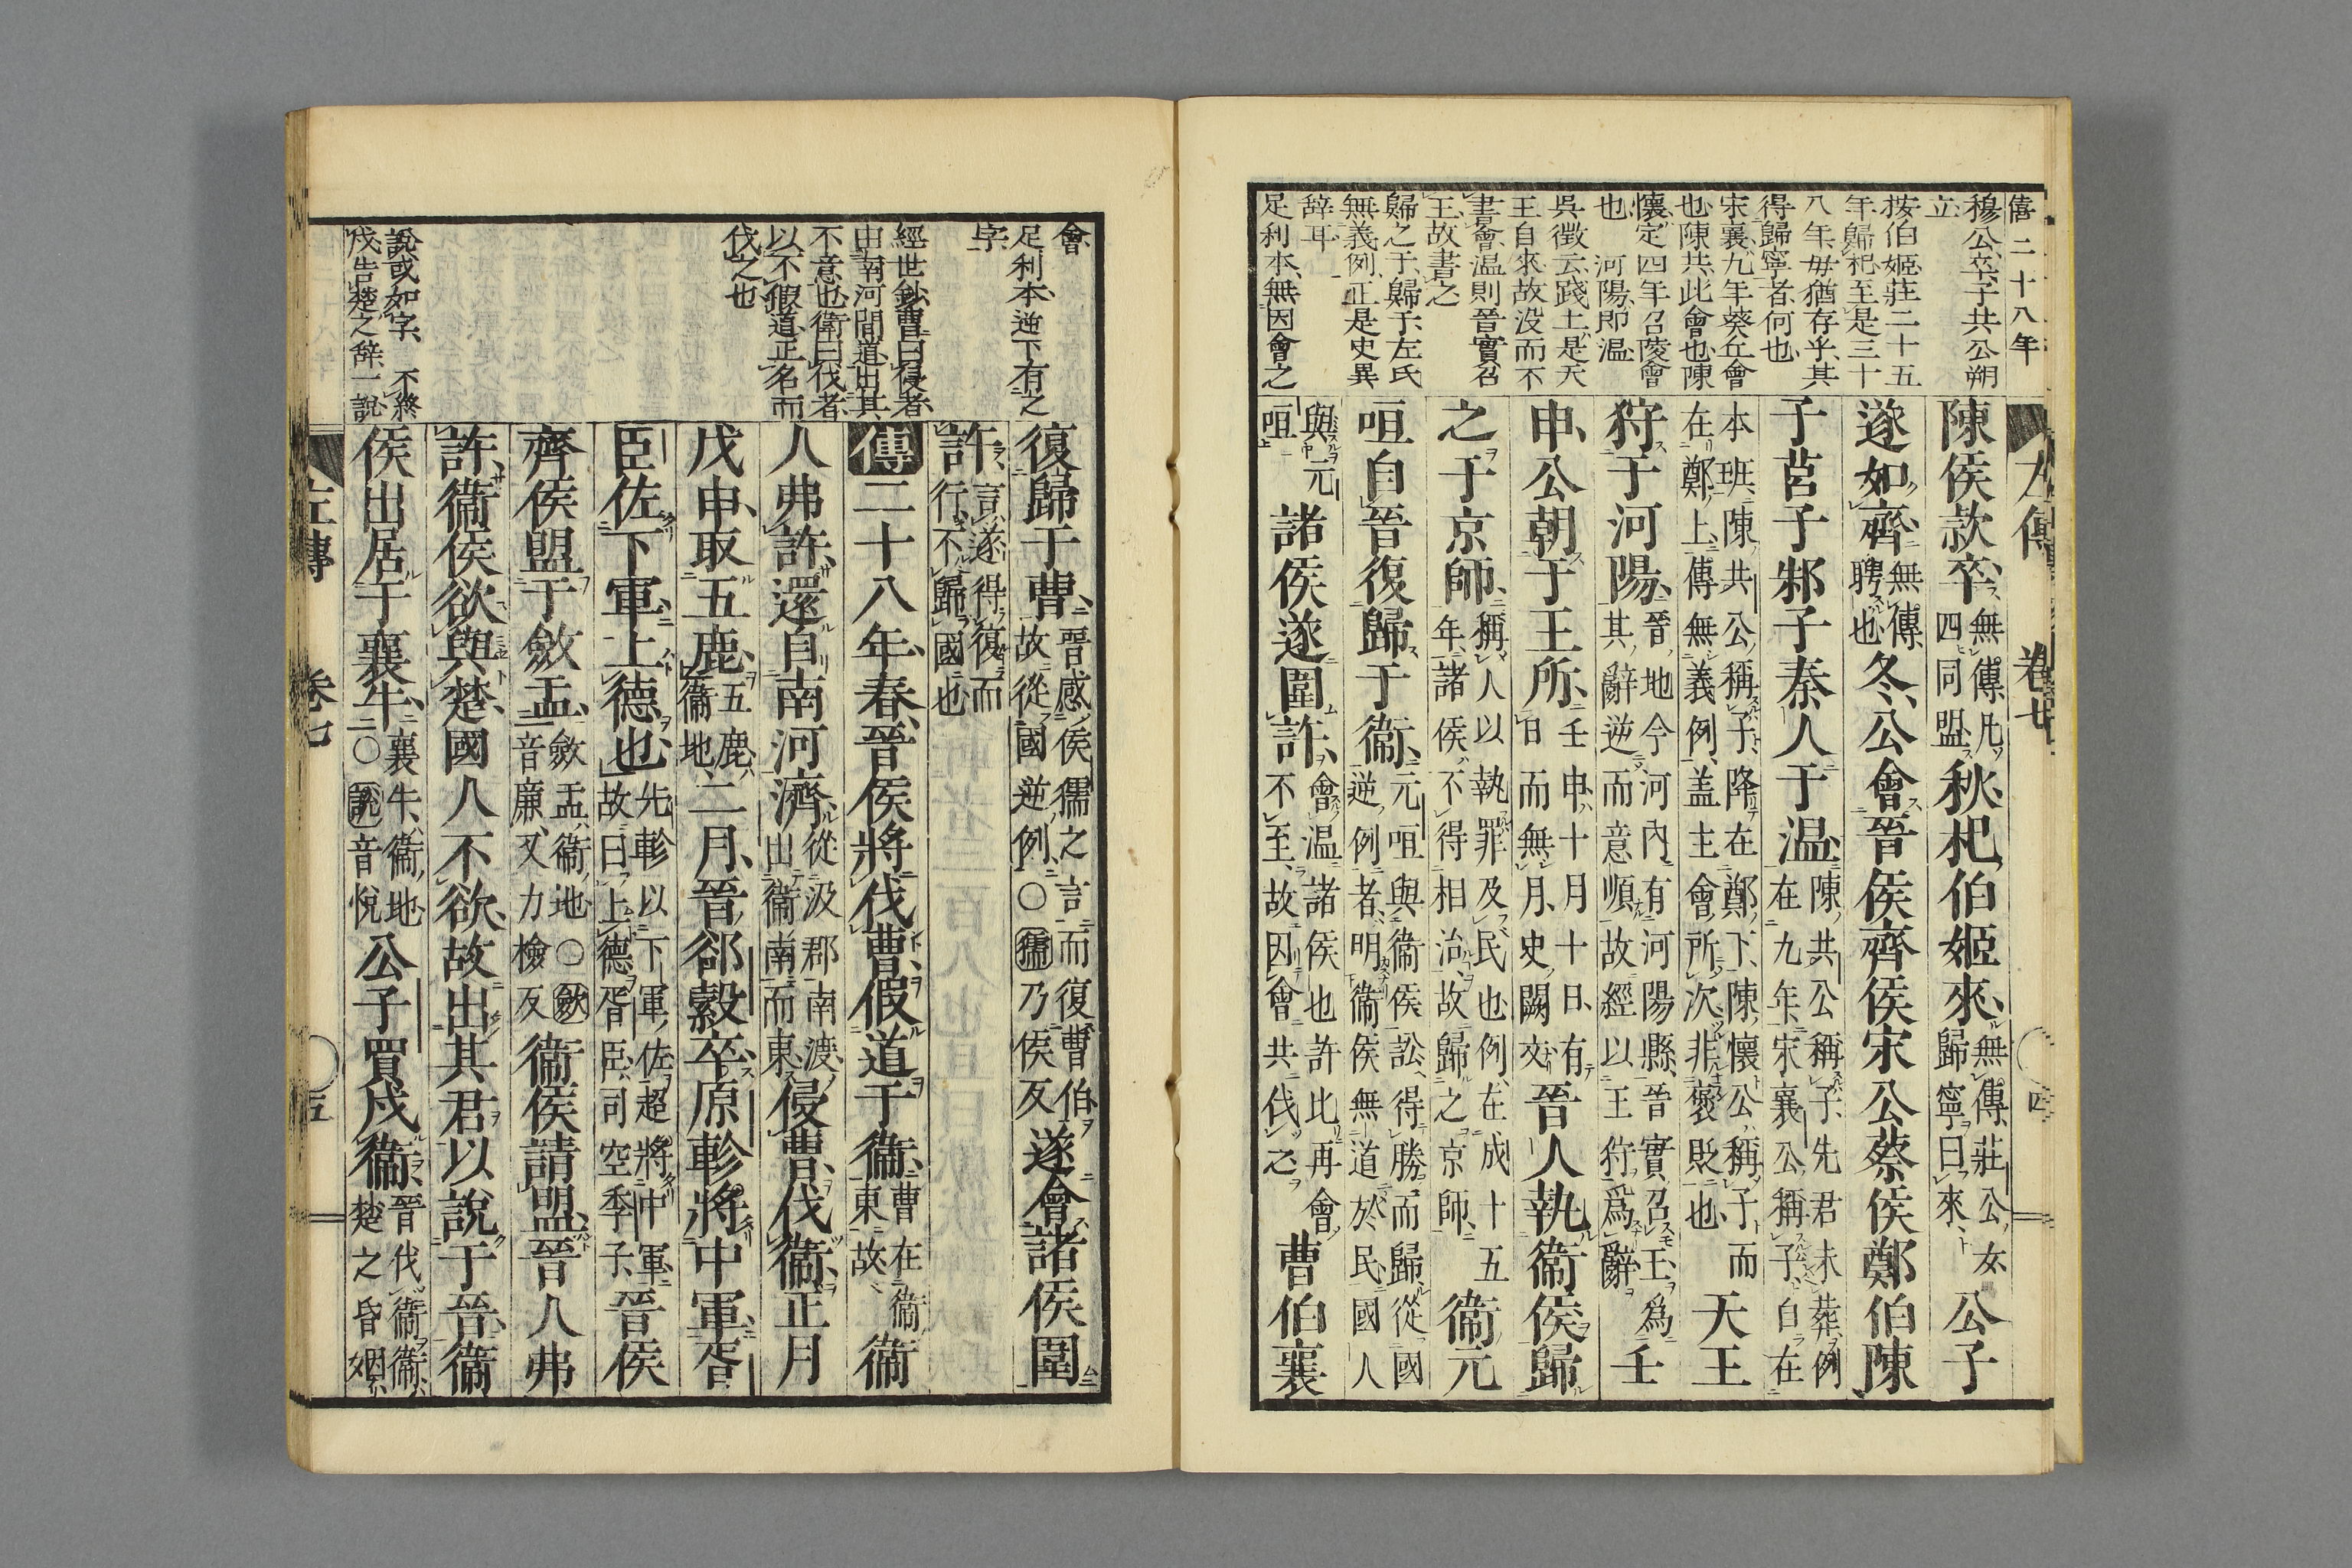 僖二十八年
穆公卒子共公朔
立
按伯姬莊二十五
年歸杞至是三十
八年毋猶存乎其
得歸寧者何也
宋襄九年葵丘會
也陳共此會也陳
懷定四年召陵會
也　河陽即温
吳徵云踐土是天
王自來故没而不
書會温則晉實召
王故書之
歸之于歸于左氏
無義例正是史異
辞耳
足利本無因會之
左傳　卷七　四
陳侯款卒無傳凡
四同盟秋杞伯姬來無傳莊公女
歸寧曰來公子
遂如齊無傳
聘也冬公會晉侯齊侯宋公蔡侯鄭伯陳
子莒子邾子秦人于温陳共公稱子先君未葬例
在九年宋襄公稱子自在
本班陳共公稱子降在鄭下陳懷公稱子而
在鄭上傳無義例盖主會所次非褒貶也天王
狩于河陽晉地今河內有河陽縣晉實召王爲
其辭逆而意順故經以王狩爲辭壬
申公朝于王所壬申十月十日有
日而無月史闕文晉人執衞侯歸
之于京師稱人以執罪及民也例在成十五
年諸侯不得相治故歸之京師衞元
咺自晉復歸于衞元咺與衞侯訟得勝而歸從國
逆例者明衞侯無道於民國人
與元
咺諸侯遂圍許會温諸侯也許比再會
不至故因會共伐之曹伯襄
會
足利本逆下有之
字
經世鈔曹曰侵者
由南河間道出其
不意也衛曰伐者
以不假道正名而
伐之也
說或如字　不終
戍告楚之辞一說
復歸于曹晉感侯獳之言而復曹伯
故從國逆例○獳乃侯反遂會諸侯圍
許言遂得復而
行不歸國也
傳二十八年春晉侯將伐曹假道于衞曹在衞
東故衞
人弗許還自南河濟從汲郡南渡
出衞南而東侵曹伐衞正月
戊申取五鹿五鹿
衞地二月晉郤縠卒原軫將中軍胥
臣佐下軍上德也先軫以下軍佐超將中軍
故曰上德胥臣司空季子晉侯
齊侯盟于斂盂斂盂衞地○斂
音廉又力檢反衞侯請盟晉人弗
許衞侯欲與楚國人不欲故出其君以說于晉衞
侯出居于襄牛襄牛衞地
二○說音悅公子買戍衞晉伐衞衞
楚之昏姻
左傳　卷七　五